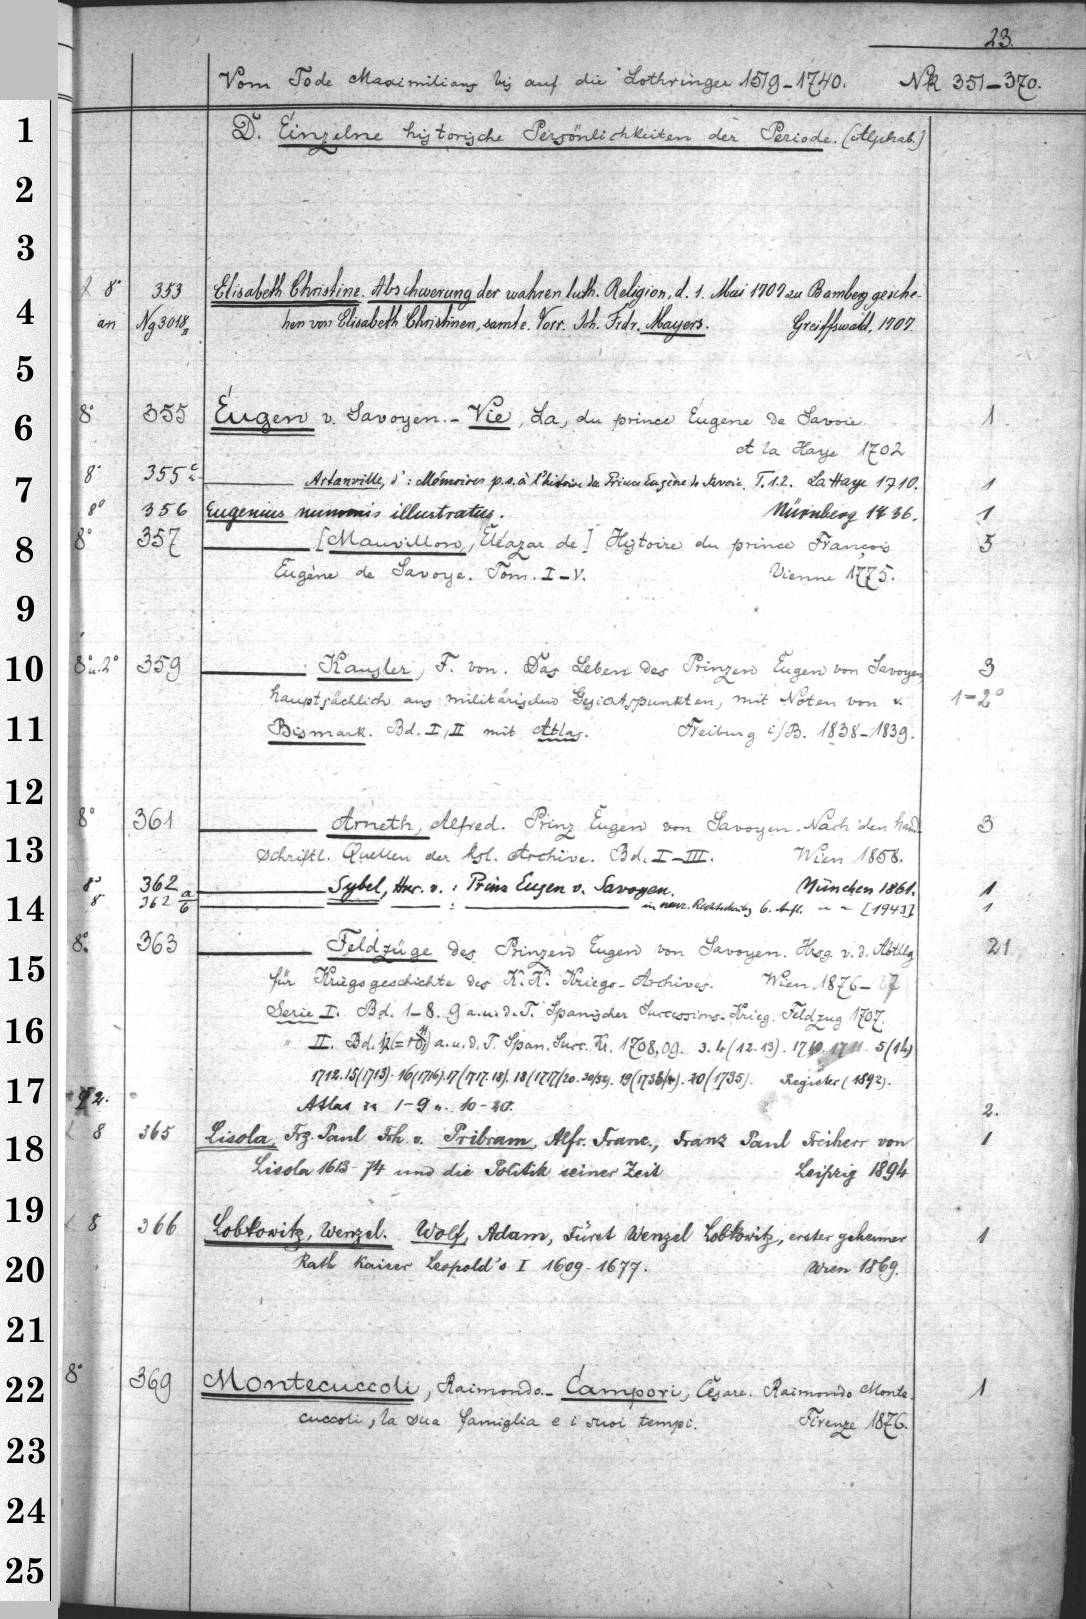 23.
Vom Tode Maximilians bis auf die Lothringer 1519-1740. Nk 351-370.
D. Einzelne historische Persönlichkeiten der Periode. (Alphab.)
8° 353 Elisabeth Christine. Abschwerung der wahren luth. Religion, d. 1. Mai 1707 zu Bamberg gesche-
an Ng 3018 hen von Elisabeth Christinen, samt e. Vorr. Joh. Frdr. Mayers. Greiffswald, 1707.
8° 355 Eugen v. Savoyen. - Vie, La, du prince Eugene de Savoie. 1
A la Haye 1702
8° 355 c Artanville, d': Mémoires p.s.à l'histoire du Prince Eugène de Savoie. T.1.2. La Haye 1710. 1
8° 356 Eugenius nummis illustratus. Nürnberg 1736. 1
8° 357 [Mauvillon, Eléazar de] Histoire du prince François 5
Eugène de Savoye. Tom. I-V. Vienne 1775.
8° u. 2° 359 Kausler, F. von. Das Leben des Prinzen Eugen von Savoyen 3
hauptsächlich aus militärischen Gesichtspunkten, mit Noten von v. 1=2°
Bismark. Bd. I, II mit Atlas. Freiburg i/B. 1838-1839.
8° 361 Arneth, Alfred. Prinz Eugen von Savoyen. Nach den hand 3
schriftl. Quellen der ksl. Archive. Bd. I-III. Wien 1858.
8° 362 a Sybel, Hnr. v. : Prinz Eugen v. Savoyen. München 1861. 1
8 362 b : in neur. Rechtschreibg 6. Aufl. " " [1943] 1
8° 363 Feldzüge des Prinzen Eugen von Savoyen. Hsg. v. d. Abthlg 21
für Kriegsgeschichte des K. K. Kriegs-Archives. Wien 1876-
Serie I. Bd. 1-8. 9 a. u. d. T. Spanischer Successions-Krieg. Feldzug 1707.
" II. Bd. a. u. d. T. Span. Succ. Kr. 1708, 09. 3. 4 (12.13). 1710. 1711. 5 (14)
1712. 15 (1713). 16 (1716). 17 (1717.18). 18 (1717/20. 30/32). 19 (1733/4). 20 (1735). Register (1892).
2. Atlas zu 1-9 u. 10-20. 2.
8 365 Lisola, Frz. Paul Frh. v. Pribram, Alfr. Franc., Franz Paul Freiherr von 1
Lisola 1613-74 und die Politik seiner Zeit Leipzig 1894
8 366 Lobkowitz, Wenzel. Wolf, Adam, Fürst Wenzel Lobkowitz, erster geheimer 1
Rath Kaiser Leopold's I 1609-1677. Wien 1869.
8° 369 Montecuccoli, Raimondo. - Campori, Cesare. Raimondo Monte 1
cuccoli, la sua famiglia e i suoi tempi. Firenze 1876.
1
2
3
4
5
6
7
8
9
10
11
12
13
14
15
16
17
18
19
20
21
22
23
24
25